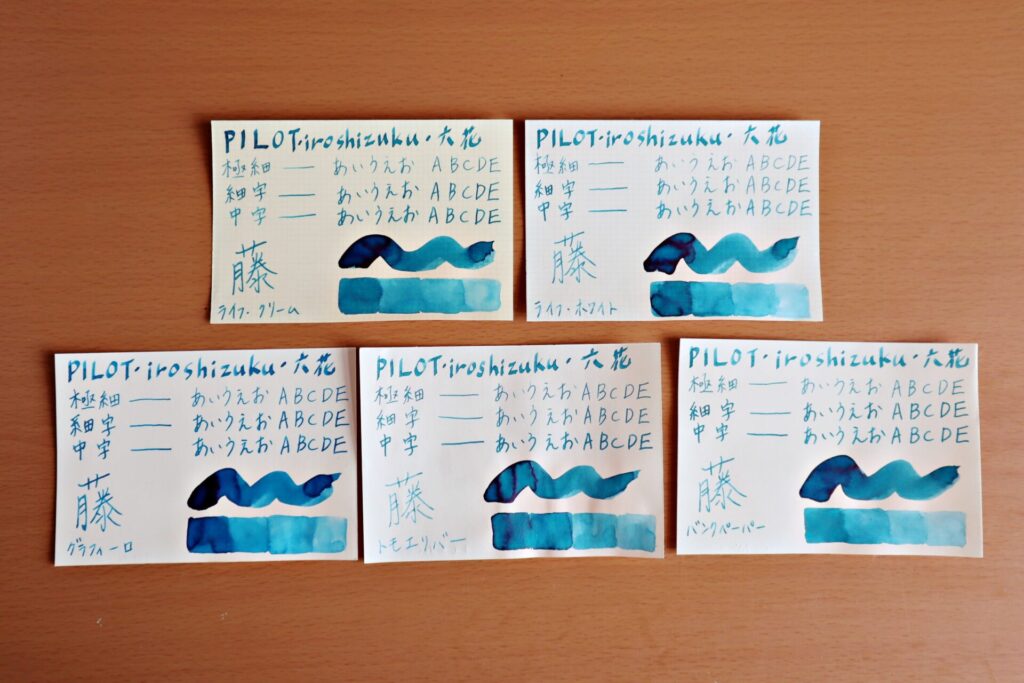 PILOT・iroshizuku・六花
極細 — あいうえお ABCDE
細字 — あいうえお ABCDE
中字 — あいうえお ABCDE
藤
ライフ・クリーム
PILOT・iroshizuku・六花
極細 — あいうえお ABCDE
細字 — あいうえお ABCDE
中字 — あいうえお ABCDE
藤
ライフ・ホワイト
PILOT・iroshizuku・六花
極細 — あいうえお ABCDE
細字 — あいうえお ABCDE
中字 — あいうえお ABCDE
藤
グラフィーロ
PILOT・iroshizuku・六花
極細 — あいうえお ABCDE
細字 — あいうえお ABCDE
中字 — あいうえお ABCDE
藤
トモエリバー
PILOT・iroshizuku・六花
極細 — あいうえお ABCDE
細字 — あいうえお ABCDE
中字 — あいうえお ABCDE
藤
バンクペーパー